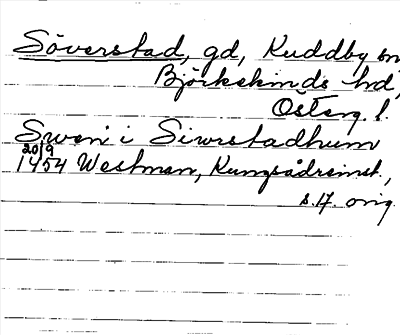 Söverstad, gd, Kuddby sn
Björkekinds hd,
Österg. l.
Swen i Siwrstadhum
20/9
1454 Westman, Kungsådreinst.,
s. 17. orig